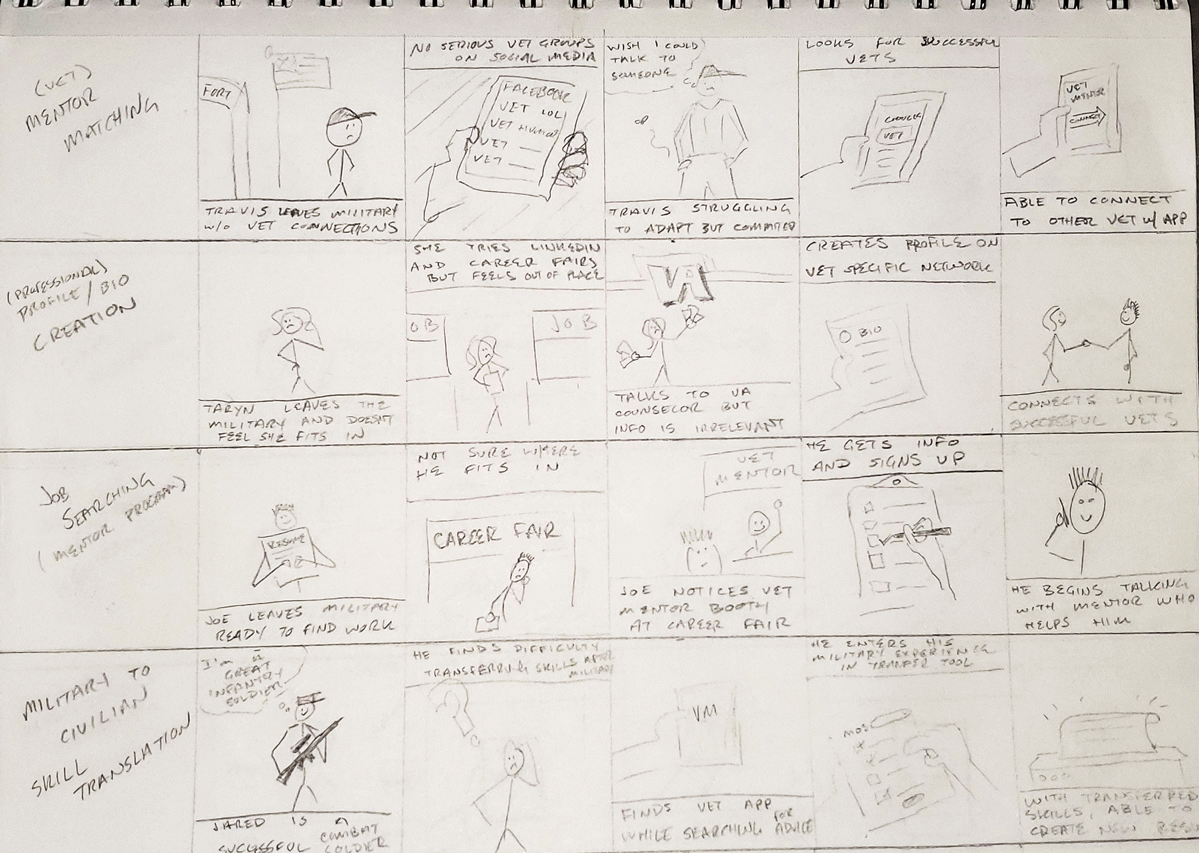 (VET)
MENTOR
MATCHING
FORT
TRAVIS LEAVES MILITARY
W/O VET CONNECTIONS
NO SERIOUS VET GROUPS
ON SOCIAL MEDIA
FACEBOOK
VET LOL
VET HUMOR
VET
VET
WISH I COULD
TALK TO
SOMEONE
TRAVIS STRUGGLING
TO ADAPT BUT COMMITTED
LOOKS FOR SUCCESSFUL
VETS
VET
VET
MENTOR
CONNECT
ABLE TO CONNECT
TO OTHER VET W/ APP
(PROFESSIONAL)
PROFILE/BIO
CREATION
TARYN LEAVES THE
MILITARY AND DOESN'T
FEEL SHE FITS IN
SHE TRIES LINKEDIN
AND CAREER FAIRS
BUT FEELS OUT OF PLACE
OB
JOB
VA
TALKS TO VA
COUNSELOR BUT
INFO IS IRRELEVANT
CREATES PROFILE ON
VET SPECIFIC NETWORK
BIO
CONNECTS WITH
SUCCESSFUL VETS
JOB
SEARCHING
(MENTOR PROGRAM)
RESUME
JOE LEAVES MILITARY
READY TO FIND WORK
NOT SURE WHERE
HE FITS IN
CAREER FAIR
VET
MENTOR
JOE NOTICES VET
MENTOR BOOTH
AT CAREER FAIR
HE GETS INFO
AND SIGNS UP
HE BEGINS TALKING
WITH MENTOR WHO
HELPS HIM
MILITARY TO
CIVILIAN
SKILL
TRANSLATION
I'm a
GREAT
INFANTRY
SOLDIER
JARED IS A
SUCCESSFUL COMBAT
SOLDIER
HE FINDS DIFFICULTY
TRANSFERRING SKILLS AFTER
MILITARY
?
VM
FINDS VET APP
WHILE SEARCHING FOR ADVICE
HE ENTERS HIS
MILITARY EXPERIENCE
IN TRANSFER TOOL
MOS
WITH TRANSFERRED
SKILLS, ABLE TO
CREATE NEW RESU